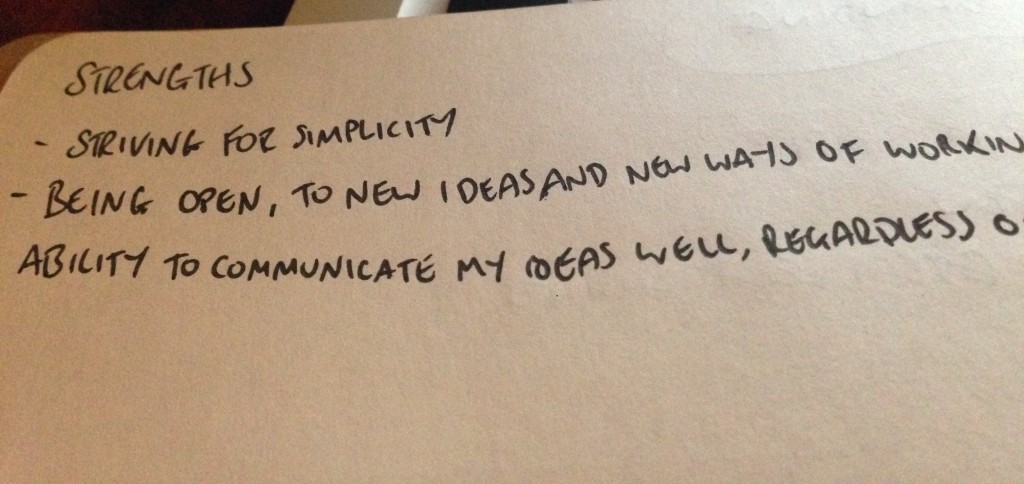 STRENGTHS
- STRIVING FOR SIMPLICITY
- BEING OPEN, TO NEW IDEAS AND NEW WAYS OF WORKIN
ABILITY TO COMMUNICATE MY IDEAS WELL, REGARDLESS O